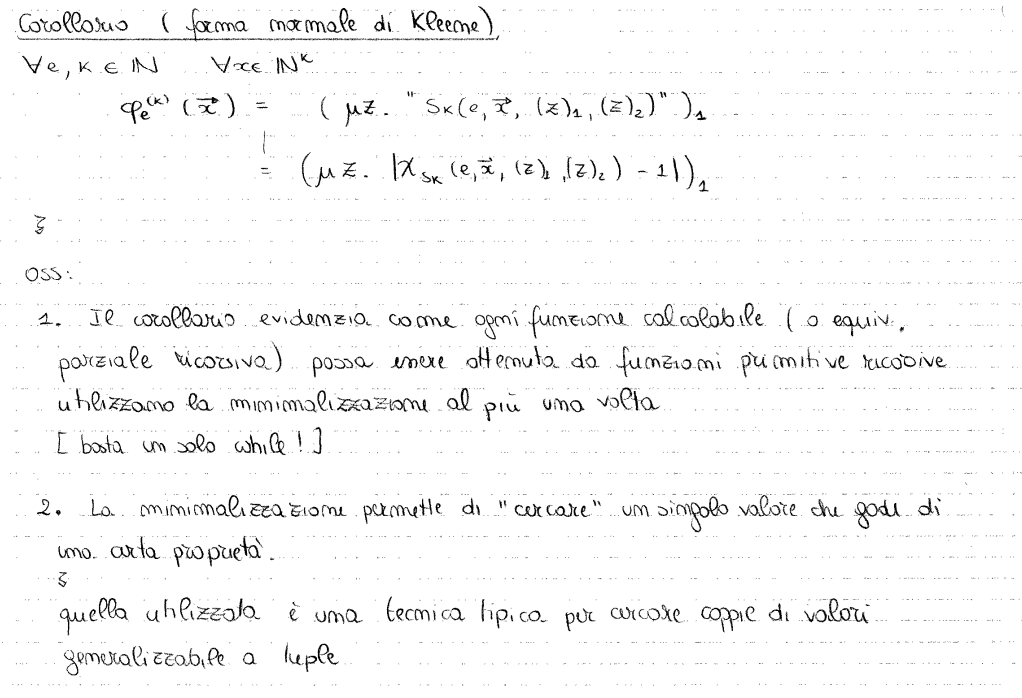 Corollario ( forma normale di Kleene)
∀e, k ∈ ℕ ∀x∈ ℕᵏ
φₑ⁽ᵏ⁾ (x⃗) = ( μz. "Sₖ(e, x⃗, (z)₁, (z)₂)" )₁
= (μz. |χ_Sₖ (e, x⃗, (z)₁, (z)₂) - 1|)₁
OSS:
1. Il corollario evidenzia come ogni funzione calcolabile ( o equiv.
parziale ricorsiva) possa essere ottenuta da funzioni primitive ricorsive
utilizzano la minimalizzazione al più una volta
[ basta un solo while ! ]
2. La minimalizzazione permette di "cercare" un singolo valore che gode di
una certa proprietà.
quella utilizzata è una tecnica tipica per cercare coppie di valori
generalizzabile a tuple